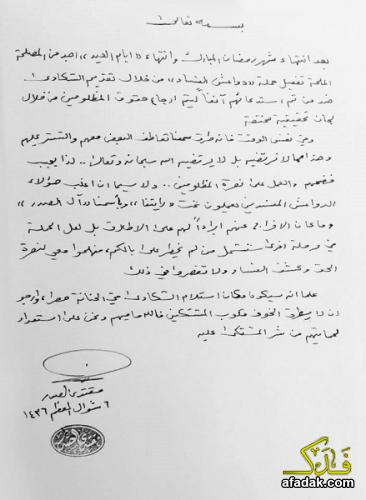 بسمه تعالى
بعد انتهاء شهر رمضان المبارك وانتهاء ((ايام العيد)) اصبح من المصلحة
الملحة تفعيل حملة ((دواعش الفساد)) من خلال تقديم الشكاوى
ضد من تم استدعائهم آنفاً ليتم ارجاع حقوق المظلومين من خلال
لجان تحقيقية مختصة
وفي نفس الوقت فانه طرق سمعنا تعاطف البعض معهم والتستر عليهم
وهذا مما لا نرتضيه بل لا يرتضيه الله سبحانه وتعالى .. لذا يجب
فضحهم والعمل على نصرة المظلومين .. ولا سيما ان اغلب هؤلاء
الدواعش المفسدين يعملون تحت ((رايتنا)) وبأسمنا ((آل الصدر))
وما كان الافراج عنهم ابراءاً لهم على الاطلاق بل لعل الحملة
في مرحلة اخرى ستشمل من لم يخطر على بالكم، فهلموا معي لنصرة
الحق وكشف الفساد ولا تقصروا في ذلك
علما انه سيكون مكان استلام الشكاوى في الحنانة حصرا، وارجو
ان لا يتطرق الخوف قلوب المشتكين فالله حاميهم ونحن على استعداد
لحمايتهم من شر المشتكى عليه
مقتدى الصدر
٦ شوال المعظم ١٤٣٦
فدك
afadak.com